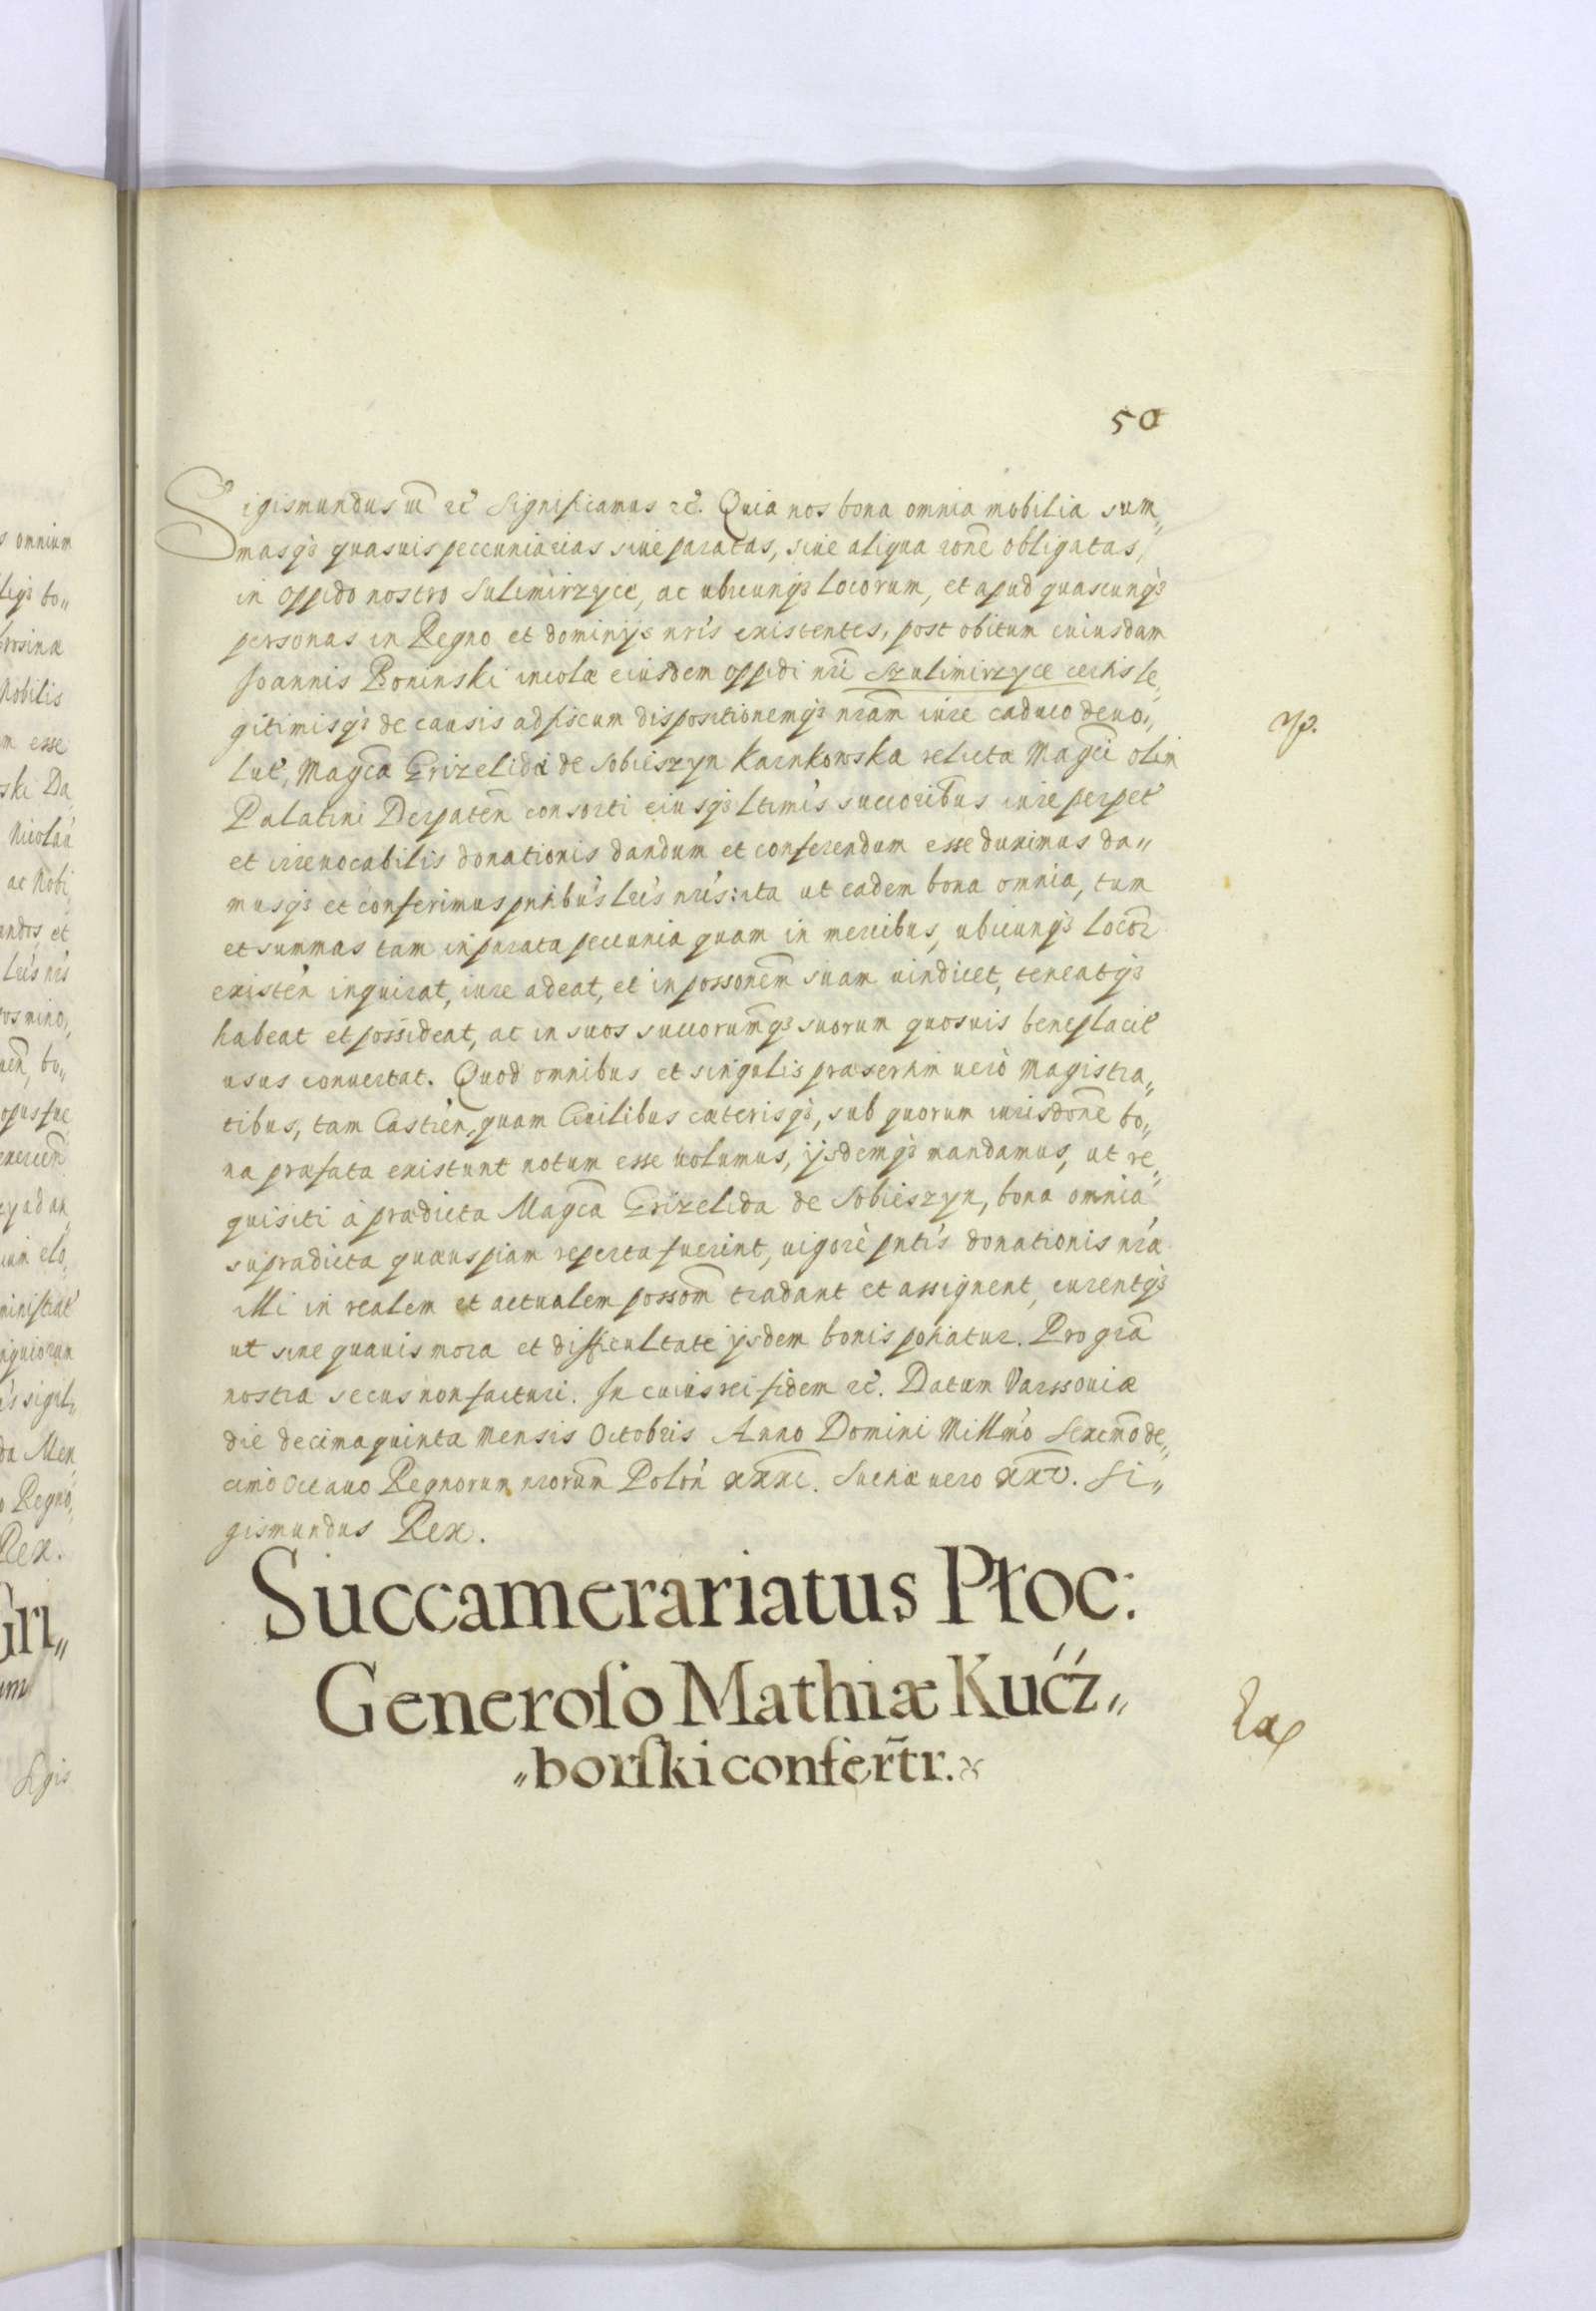 50
Sigismundus III etc Significamus etc. Quia nos bona omnia mobilia sum„
masq3 quasuis peccuniarias siue paratas, siue aliqua rone obligatas,
in oppido nostro Sulimirzyce, ac ubicunq3 locorum, et apud quascunq3
personas in Regno et dominijs nris existentes, post obitum cuiusdam
Joannis Poninski incolæ eiusdem oppidi nri Szulimirzyce certis le„
gitimisq3 de causis ad fiscum dispositionemq3 nram iure caduco deuo„
lut, Magca Grizelidi de Sobieszyn Karnkowska relicta Magci olim
Palatini Derpaten consorti eiusq3 ltimis successoribus iure perpet
et irreuocabilis donationis dandum et conferendum esse duximus da„
musq3 et conferimus pntibus lris nris: ita ut eadem bona omnia, tum
et summas tam in parata peccunia quam in mercibus, ubicunq3 locor
existen inquirat, iure adeat, et in possonem suam uindicet, teneatq3
habeat et possideat, ac in suos succorumq3 suorum quosuis beneplacit
usus conuertat. Quod omnibus et singulis præsertim uero Magistra„
tibus, tam Castren, quam Ciuilibus cæterisq3, sub quorum iurisdone bo„
na præfata existunt notum esse uolumus, ijsdemq3 mandamus, ut re„
quisiti à prædicta Magca Grizelida de Sobieszyn, bona omnia
supradicta quæuspiam reperta fuerint, uigore pntis donationis nræ
illi in realem et actualem possom tradant et assignent, curentq3
ut sine quauis mora et difficultate ijsdem bonis potiatur. Pro gra
nostra secus non facturi. In cuius rei fidem etc. Datum Varssouiæ
die decima quinta Mensis Octobris Anno Domini Millmo Sexcmo de„
cimo Octauo Regnorum nrorum Polon XXXI. Sueciæ uero XXV. Si„
gismundus Rex.
Succamerariatus Płoc:
Generoso Mathiæ Kućź„
„borski confertr.